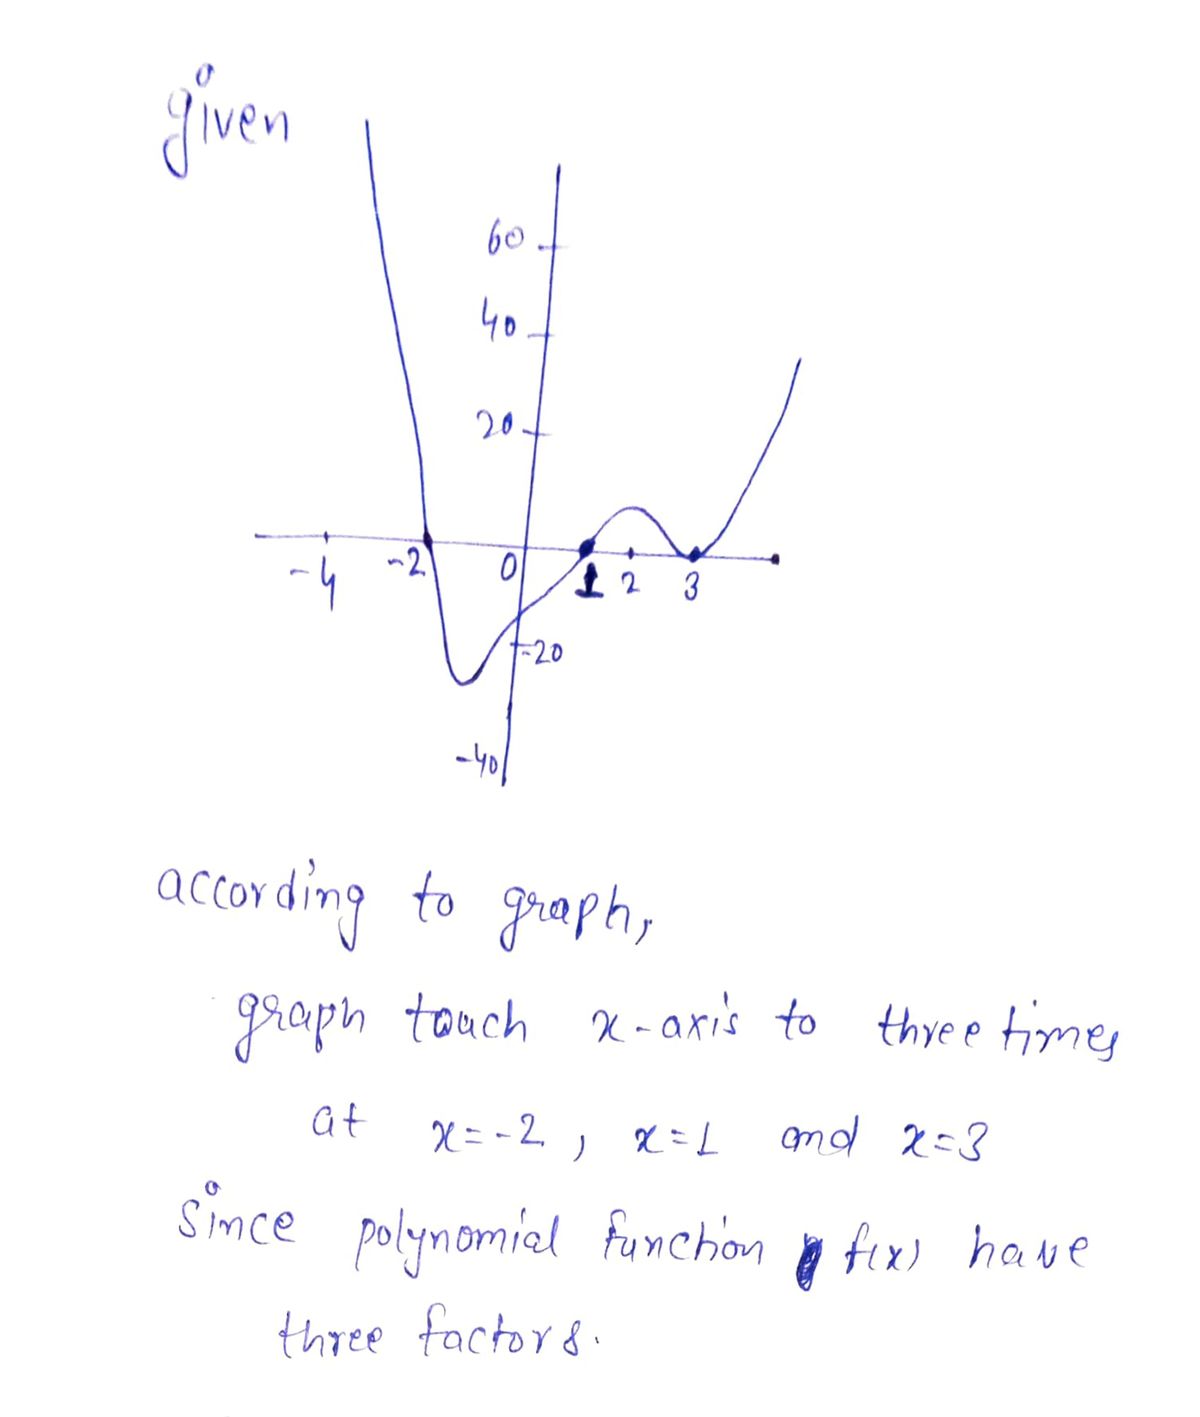 given
60
40
20
-4 -2 0 1 2 3
-20
-40
according to graph,
graph touch x-axis to three times
at x=-2, x=1 and x=3
Since polynomial function f(x) have
three factors.